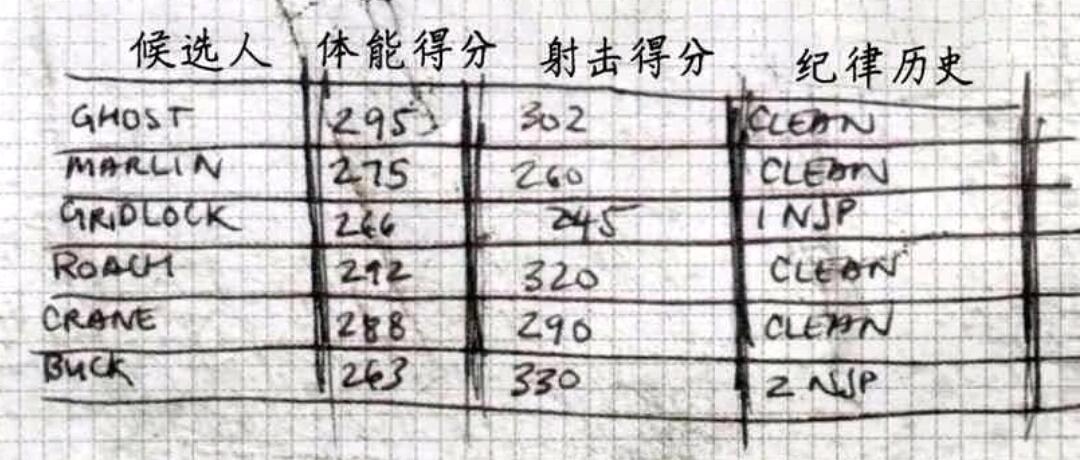 候选人 体能得分 射击得分 纪律历史
GHOST 295 302 CLEAN
MARLIN 275 260 CLEAN
GRIDLOCK 266 245 1 NJP
ROACH 292 320 CLEAN
CRANE 288 290 CLEAN
BUCK 263 330 2 NJP